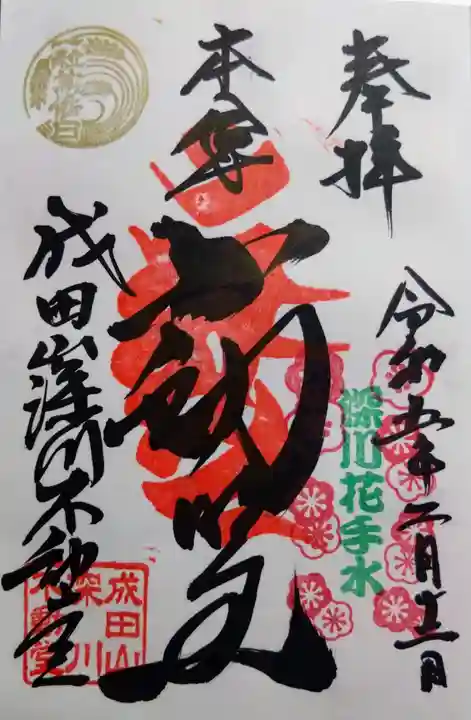 奉拝
令和五年二月十二日
深川花手水
本尊
不動明王
成田山深川不動堂
成田山
深川
不動堂